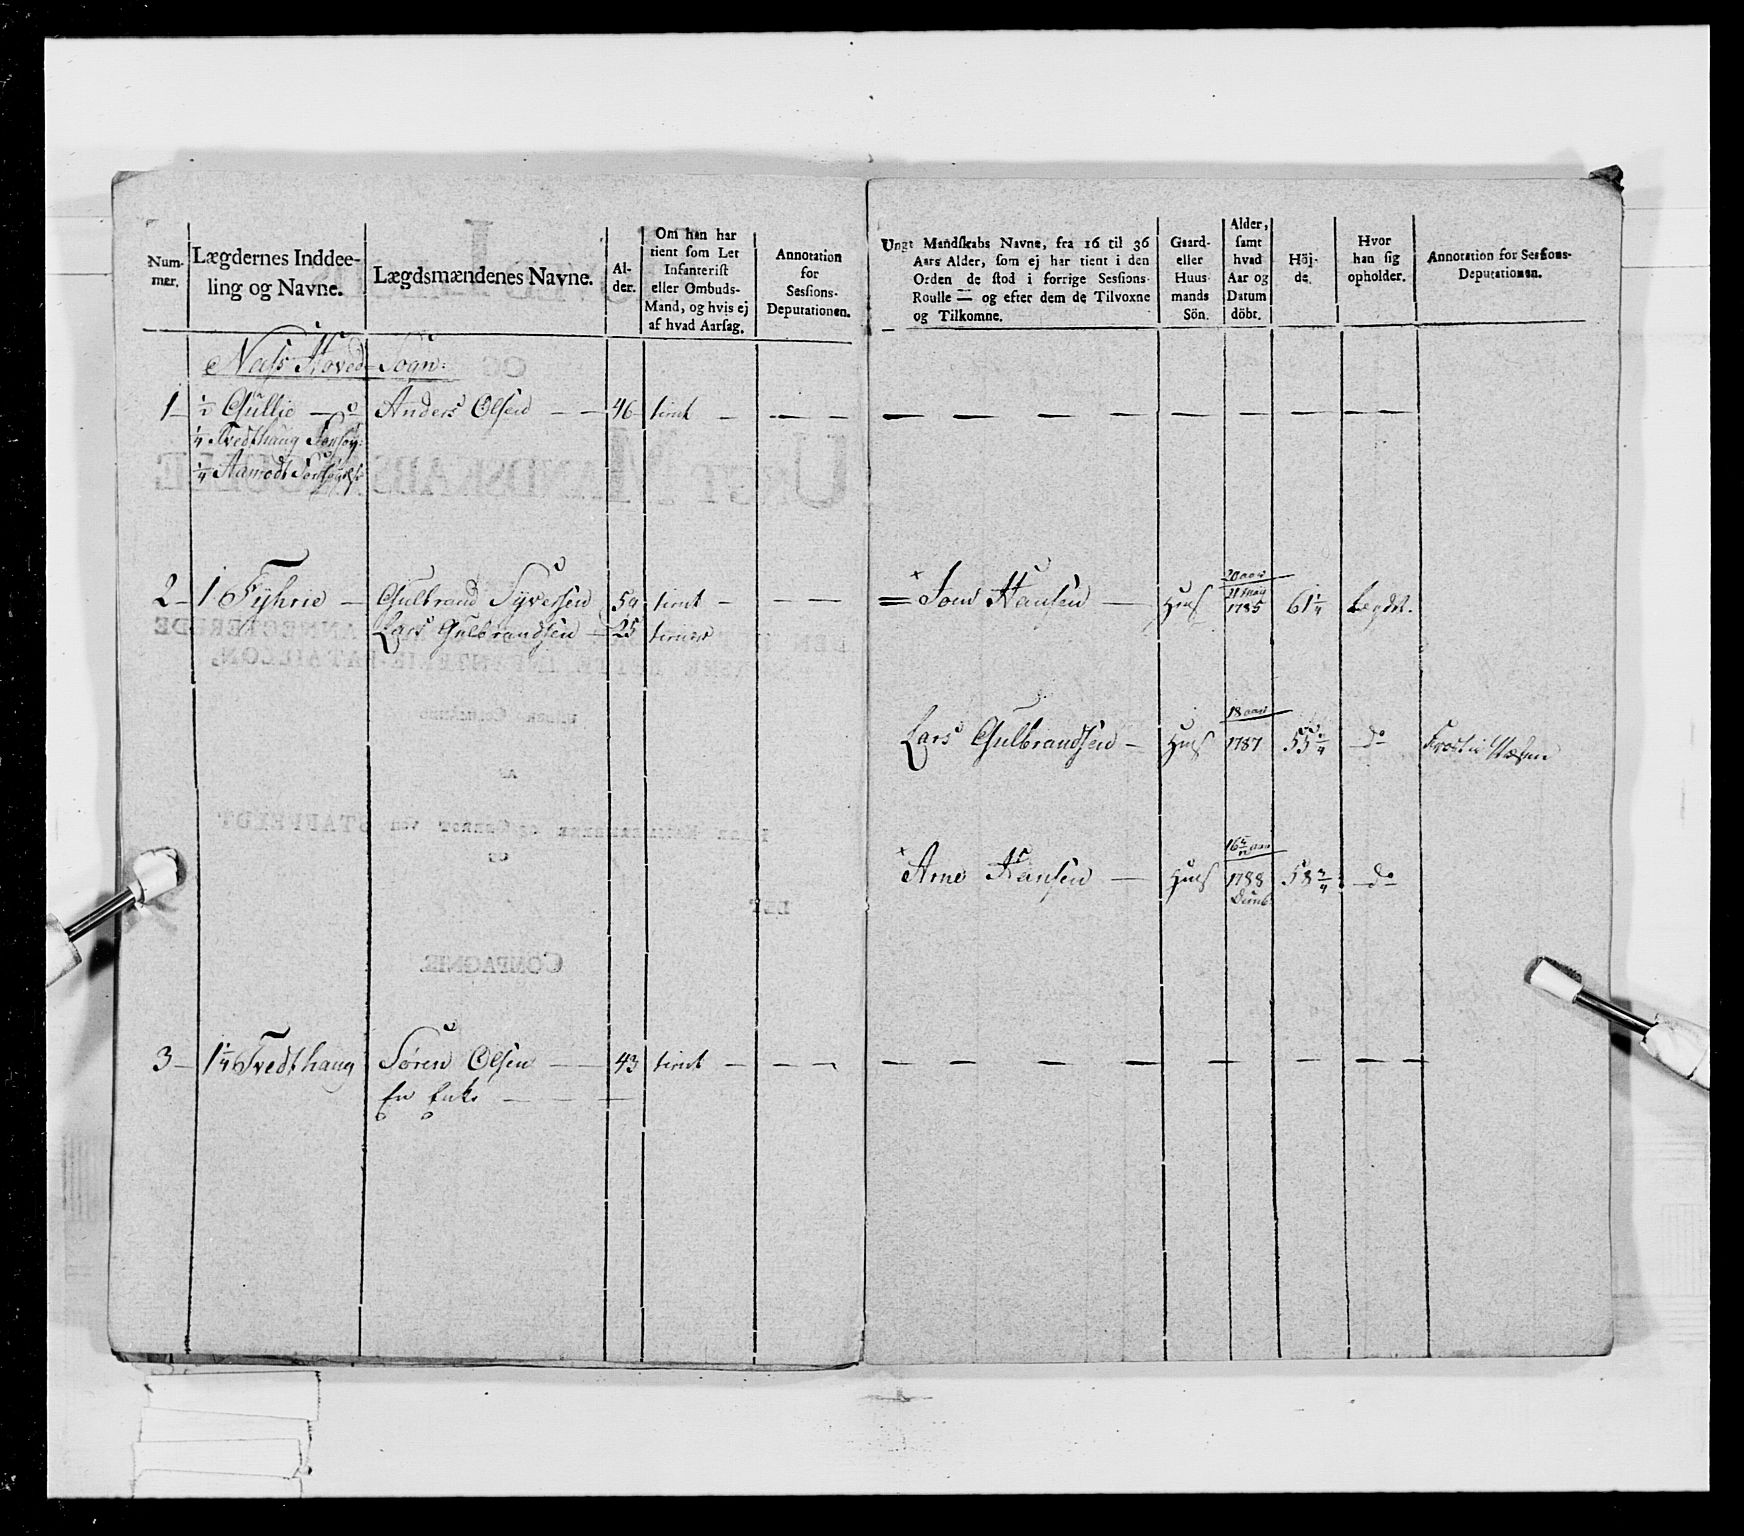 Num-
mer.
Lægdernes Inddee-
ling og Navne.
Lægdsmændenes Navne.
Al-
der.
Om han har
tient som Let
Infanterist
eller Ombuds-
Mand, og hvis ej
af hvad Aarsag.
Annotation
for
Sessions-
Deputationen.
Ungt Mandskabs Navne, fra 16 til 36
Aars Alder, som ej har tient i den
Orden de stod i forrige Sessions-
Roulle = og efter dem de Tilvoxne
og Tilkomne.
Gaard-
eller
Huus-
mands
Sön.
Alder,
samt
hvad
Aar og
Datum
döbt.
Höj-
de.
Hvor
han sig
opholder.
Annotation for Sessions-
Deputationen.
Næss Hoved-Sogn:
1 — 1/2 Gullie — Anders Olsen — — 46 tient — — —
1/4 Tvedthaug
1/4 Aamodt
2 — 1 Fyhrie — Gulbrand Syversen 54 tient — — —
Lars Gulbrandsen — 25 tiener
= Hansen — Huus 20 aar 1785 61 1/4 Legdet.
Lars Gulbrandsen — Huus 18 aar 1787 55 3/4 do
Arne Hansen — Huus 1788 58 3/4 do
3 — 1 1/4 Tvedthaug Søren Olsen — — 43 tient — — —
En Enke — — —